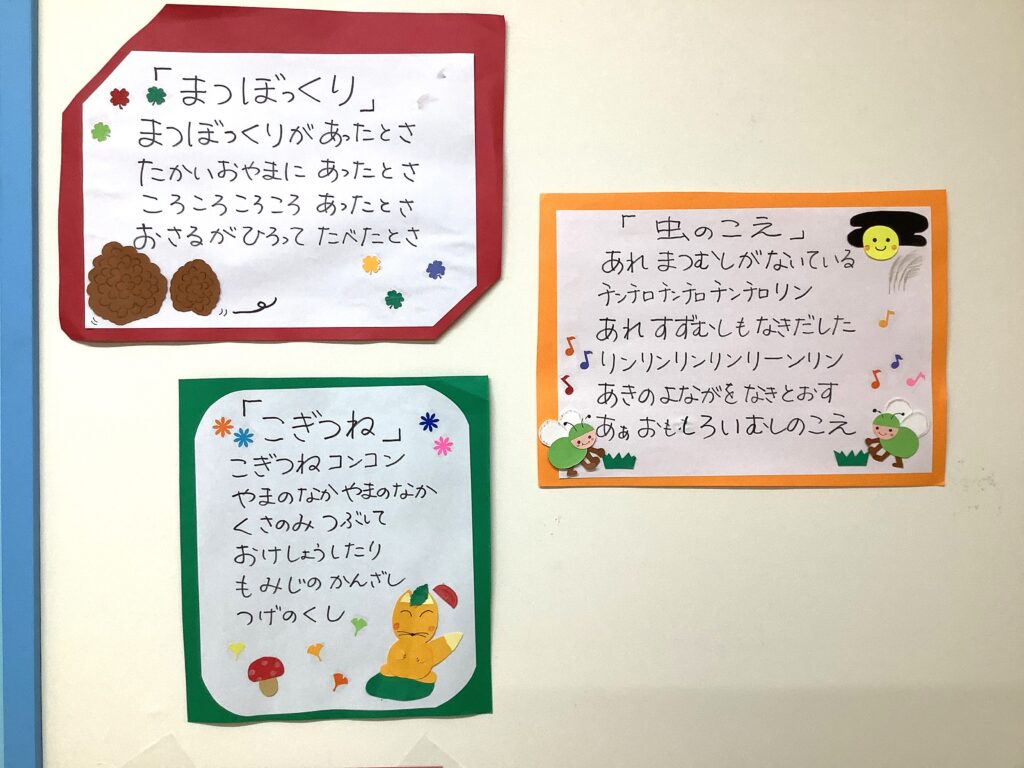 「まつぼっくり」
まつぼっくりが あったとさ
たかいおやまに あったとさ
ころころころころ あったとさ
おさるがひろって たべたとさ
「虫のこえ」
あれ まつむしがないている
チンチロチンチロチンチロリン
あれ すずむしもなきだした
リンリンリンリンリーンリン
あきのよながを なきとおす
あぁ おもしろい むしのこえ
「こぎつね」
こぎつねコンコン
やまのなか やまのなか
くさのみ つぶして
おけしょうしたり
もみじの かんざし
つげのくし